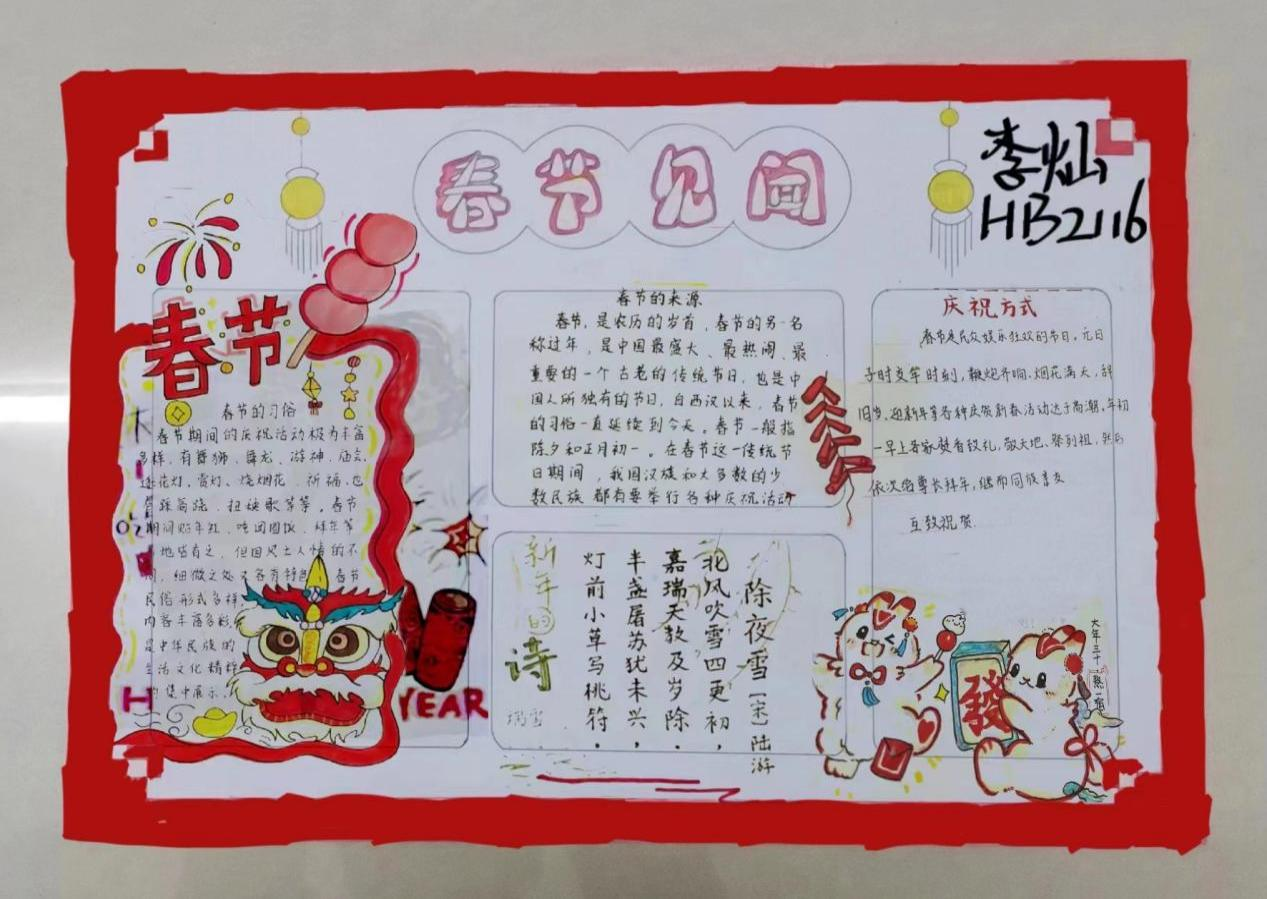 春节见闻
李灿
HB2116
春节
春节的习俗
春节期间的庆祝活动极为丰富
多样,有舞狮、舞龙、游神、庙会、
逛花灯、赏灯、烧烟花、祈福,也
有踩高跷、扭秧歌等等。春节
期间贴年红、吃团圆饭、拜年等
地皆有之,但因风土人情的不
同,细微之处又各有特色。春节
民俗形式多样,
内容丰富多彩,
是中华民族的
生活文化精粹
的集中展示。
YEAR
H
春节的来源
春节,是农历的岁首,春节的另一名
称过年,是中国最盛大、最热闹、最
重要的一个古老的传统节日,也是中
国人所独有的节日,自西汉以来,春节
的习俗一直延续到今天。春节一般指
除夕和正月初一。在春节这一传统节
日期间,我国汉族和大多数的少
数民族都有要举行各种庆祝活动
新年的诗
瑞雪
除夜雪[宋]陆游
北风吹雪四更初,
嘉瑞天教及岁除.
半盏屠苏犹未举,
灯前小草写桃符.
庆祝方式
春节是民众娱乐狂欢的节日,元日
子时交年时刻,鞭炮齐响、烟花满天,辞
旧岁、迎新年等各种庆贺新春活动达于高潮,年初
一早上各家焚香致礼,敬天地、祭列祖,然后
依次给尊长拜年,继而同族亲友
互致祝贺.
發
大年三十
熬一宿